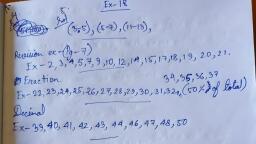 Ex-18
(3,5), (5-7), (11-13),
Revision ex-(1g-7)
Ex-2, 3, 4, 5, 7, 9, 10, 12, 14, 15, 17, 18, 19, 20, 21.
Fraction 34, 35, 36, 37
Ex-22, 23, 24, 25, 26, 27, 28, 29, 30, 31, 32, (50% of total)
Decimal
Ex-39, 40, 41, 42, 43, 44, 46, 47, 48, 50